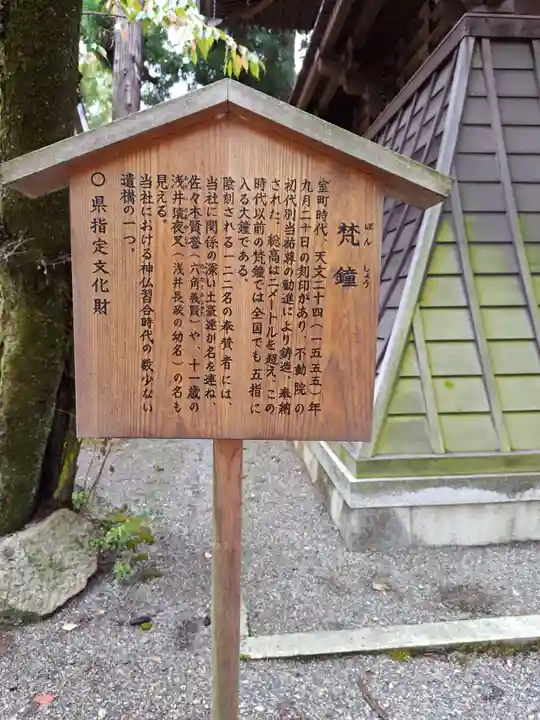 梵鐘
ぼん しょう
室町時代、天文二十四(一五五五)年
九月二十日の刻印があり、不動院の
初代別当祐尊の勧進により鋳造、奉納
された。総高は二メートルを超え、この
時代以前の梵鐘では全国でも五指に
入る大鐘である。
陰刻される一二二名の奉賛者には、
当社に関係の深い土豪達が名を連ね、
佐々木賢誉(六角義賢)や、十一歳の
浅井猿夜叉(浅井長政の幼名)の名も
見える。
当社における神仏習合時代の数少ない
遺構の一つ。
○県指定文化財